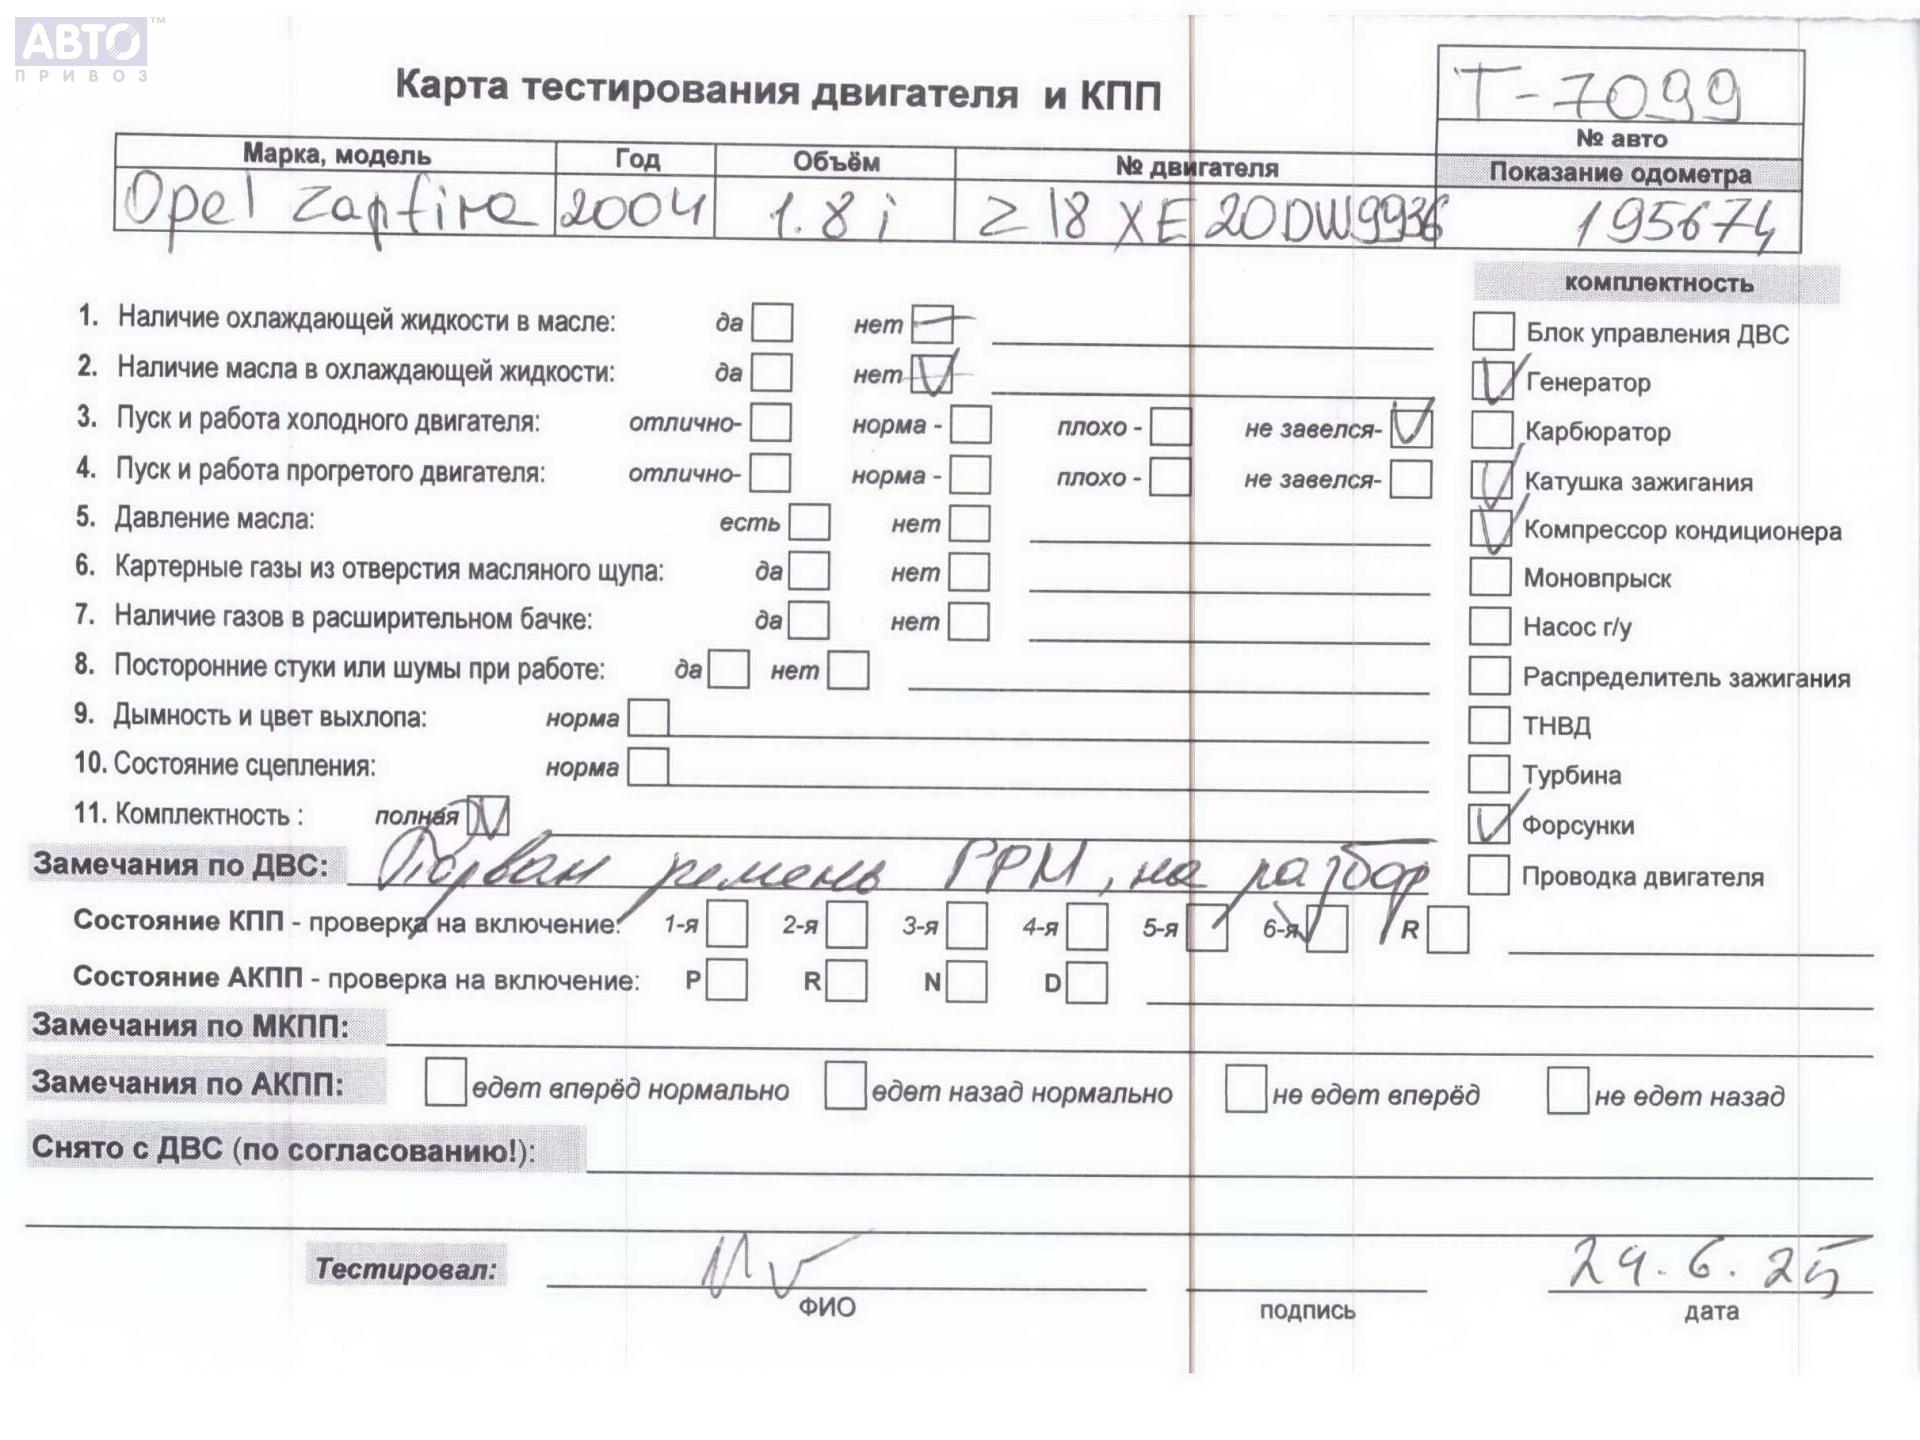 АВТО™
ПРИВОЗ
Карта тестирования двигателя и КПП
Т-7099
№ авто
Марка, модель Год Объём № двигателя Показание одометра
Opel Zapfira 2004 1.8i Z 18 XE 20DW9936 195674
комплектность
1. Наличие охлаждающей жидкости в масле: да нет
Блок управления ДВС
2. Наличие масла в охлаждающей жидкости: да нет
Генератор
3. Пуск и работа холодного двигателя: отлично- норма - плохо - не завелся-
Карбюратор
4. Пуск и работа прогретого двигателя: отлично- норма - плохо - не завелся-
Катушка зажигания
5. Давление масла: есть нет
Компрессор кондиционера
6. Картерные газы из отверстия масляного щупа: да нет
Моновпрыск
7. Наличие газов в расширительном бачке: да нет
Насос г/у
8. Посторонние стуки или шумы при работе: да нет
Распределитель зажигания
9. Дымность и цвет выхлопа: норма
ТНВД
10. Состояние сцепления: норма
Турбина
11. Комплектность : полная
Форсунки
Замечания по ДВС: Порван ремень ГРМ, на разбор
Проводка двигателя
Состояние КПП - проверка на включение: 1-я 2-я 3-я 4-я 5-я 6-я R
Состояние АКПП - проверка на включение: P R N D
Замечания по МКПП:
Замечания по АКПП: едет вперёд нормально едет назад нормально не едет вперёд не едет назад
Снято с ДВС (по согласованию!):
Тестировал: 24.6.25
ФИО подпись дата